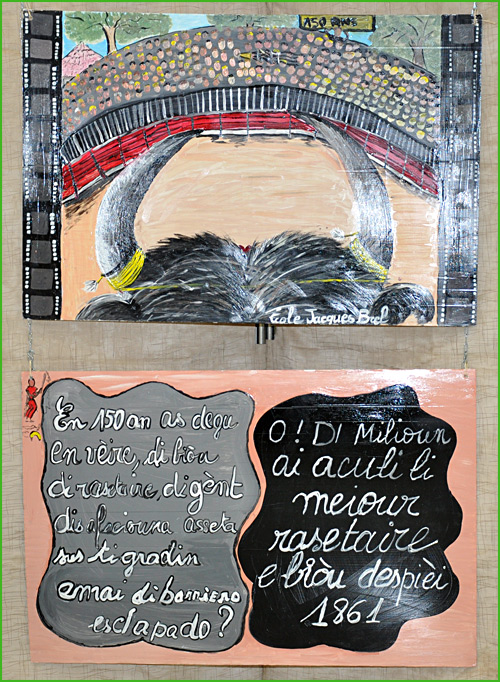 150 ANS
Ecole Jacques Brel
En 150 an as degu
en vèire, di biòu
di rasetaire, di gènt
dis afeciouna asseta
sus ti gradin
emai di barriero
esclapado ?
O ! DI Milioun
ai aculi li
meiour
rasetaire
e biòu despièi
1861